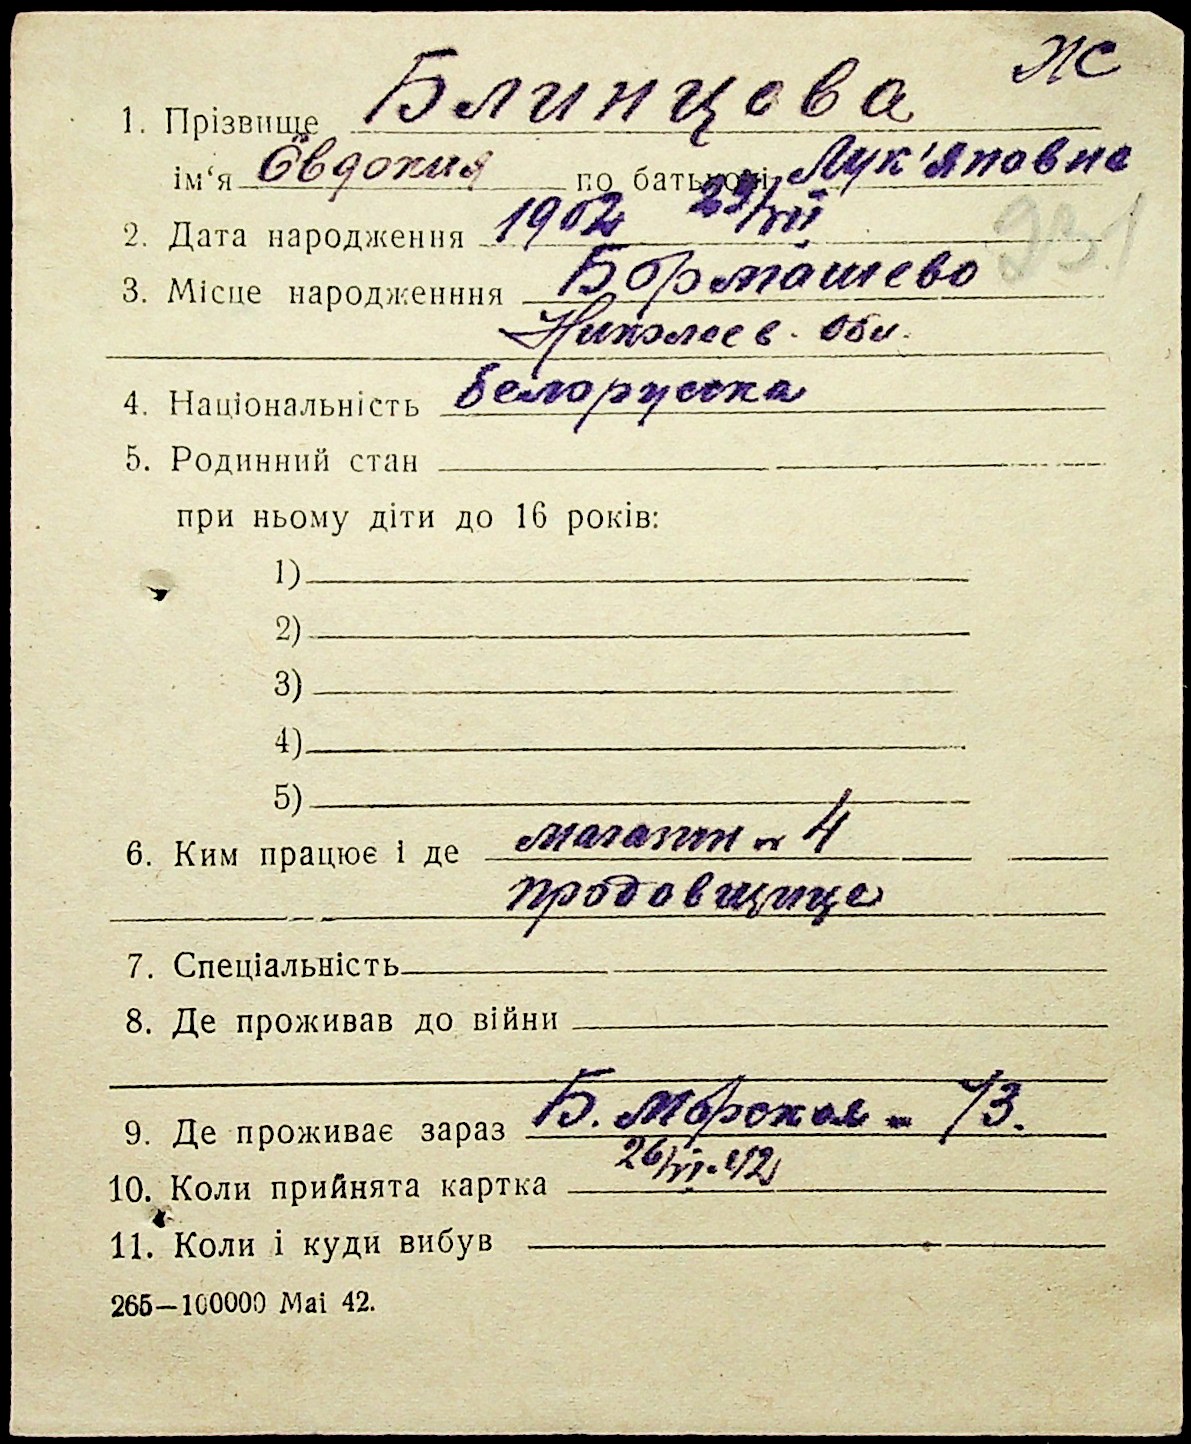 Ж
1. Прізвище Блинцова
ім‘я Євдокия по батькові Лук'яновна
2. Дата народження 1902 29/VII
931
3. Місце народженння Бормашево
Николаев. Обл.
4. Національність белоруска
5. Родинний стан
при ньому діти до 16 років:
1)
2)
3)
4)
5)
6. Ким працює і де магазин № 4
продовщица
7. Спеціальність
8. Де проживав до війни
9. Де проживає зараз Б. Морская - 73.
10. Коли прийнята картка 26/VI-42
11. Коли і куди вибув
265—100000 Маі 42.